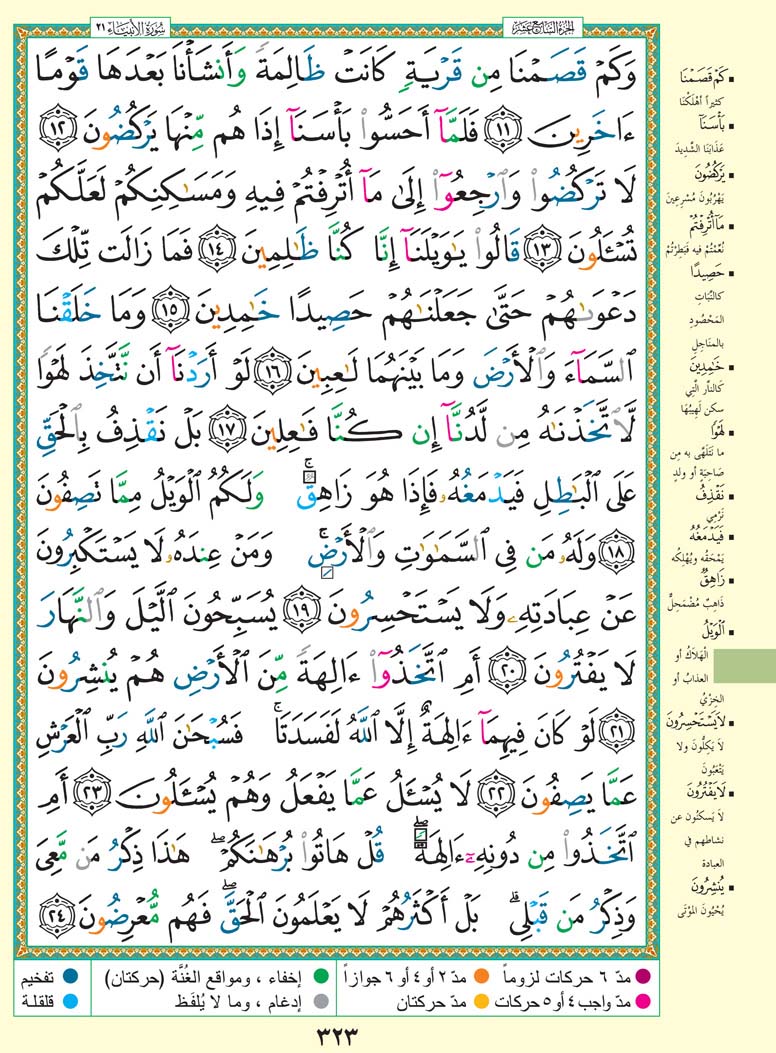 الجزء السابع عشر
سورة الأنبياء ٢١
وَكَمْ قَصَمْنَا مِن قَرْيَةٍ كَانَتْ ظَالِمَةً وَأَنشَأْنَا بَعْدَهَا قَوْمًا
ءَاخَرِينَ ١١ فَلَمَّآ أَحَسُّوا۟ بَأْسَنَآ إِذَا هُم مِّنْهَا يَرْكُضُونَ ١٢
لَا تَرْكُضُوا۟ وَٱرْجِعُوٓا۟ إِلَىٰ مَآ أُتْرِفْتُمْ فِيهِ وَمَسَـٰكِنِكُمْ لَعَلَّكُمْ
تُسْـَٔلُونَ ١٣ قَالُوا۟ يَـٰوَيْلَنَآ إِنَّا كُنَّا ظَـٰلِمِينَ ١٤ فَمَا زَالَت تِّلْكَ
دَعْوَىٰهُمْ حَتَّىٰ جَعَلْنَـٰهُمْ حَصِيدًا خَـٰمِدِينَ ١٥ وَمَا خَلَقْنَا
ٱلسَّمَآءَ وَٱلْأَرْضَ وَمَا بَيْنَهُمَا لَـٰعِبِينَ ١٦ لَوْ أَرَدْنَآ أَن نَّتَّخِذَ لَهْوًا
لَّٱتَّخَذْنَـٰهُ مِن لَّدُنَّآ إِن كُنَّا فَـٰعِلِينَ ١٧ بَلْ نَقْذِفُ بِٱلْحَقِّ
عَلَى ٱلْبَـٰطِلِ فَيَدْمَغُهُۥ فَإِذَا هُوَ زَاهِقٌ ۚ وَلَكُمُ ٱلْوَيْلُ مِمَّا تَصِفُونَ
١٨ وَلَهُۥ مَن فِى ٱلسَّمَـٰوَٰتِ وَٱلْأَرْضِ ۚ وَمَنْ عِندَهُۥ لَا يَسْتَكْبِرُونَ
عَنْ عِبَادَتِهِۦ وَلَا يَسْتَحْسِرُونَ ١٩ يُسَبِّحُونَ ٱلَّيْلَ وَٱلنَّهَارَ
لَا يَفْتُرُونَ ٢٠ أَمِ ٱتَّخَذُوٓا۟ ءَالِهَةً مِّنَ ٱلْأَرْضِ هُمْ يُنشِرُونَ
٢١ لَوْ كَانَ فِيهِمَآ ءَالِهَةٌ إِلَّا ٱللَّهُ لَفَسَدَتَا ۚ فَسُبْحَـٰنَ ٱللَّهِ رَبِّ ٱلْعَرْشِ
عَمَّا يَصِفُونَ ٢٢ لَا يُسْـَٔلُ عَمَّا يَفْعَلُ وَهُمْ يُسْـَٔلُونَ ٢٣ أَمِ
ٱتَّخَذُوا۟ مِن دُونِهِۦٓ ءَالِهَةً ۖ قُلْ هَاتُوا۟ بُرْهَـٰنَكُمْ ۖ هَـٰذَا ذِكْرُ مَن مَّعِىَ
وَذِكْرُ مَن قَبْلِى ۗ بَلْ أَكْثَرُهُمْ لَا يَعْلَمُونَ ٱلْحَقَّ ۖ فَهُم مُّعْرِضُونَ ٢٤
كَمْ قَصَمْنَا
كثيراً أهْلَكْنَا
بَأْسَنَآ
عَذَابَنَا الشَّدِيدَ
يَرْكُضُونَ
يَهْرُبُونَ مُسْرِعِينَ
مَآ أُتْرِفْتُمْ
نُعِّمْتُمْ فيه فَبَطِرْتُمْ
حَصِيدًا
كالنَّبَاتِ
المَحْصُودِ
بالمنَاجِلِ
خَـٰمِدِينَ
كَالنَّارِ الَّتِي
سكن لَهِيبُهَا
لَهْوًا
ما نَتَلَهَّى به مِن
صَاحِبَةٍ أو وَلدٍ
نَقْذِفُ
نَرْمِي
فَيَدْمَغُهُ
يَمْحَقُه ويُهْلِكُه
زَاهِقٌ
ذَاهِبٌ مُضْمَحِلٌّ
ٱلْوَيْلُ
الْهَلَاكُ أو
العذابُ أو
الخِزْيُ
لَا يَسْتَحْسِرُونَ
لاَ يَكِلُّونَ ولا
يَتْعَبُونَ
لَا يَفْتُرُونَ
لاَ يَسكنُون عن
نشاطهم في
العبادة
يُنشِرُونَ
يُحْيُونَ المَوْتَى
مدّ ٦ حركات لزوماً
مدّ ٢ أو ٤ أو ٦ جوازاً
إخفاء ، ومواقع الغُنَّة (حركتان)
تفخيم
مدّ واجب ٤ أو ٥ حركات
مدّ حركتان
إدغام ، وما لا يُلفَظ
قلقلة
٣٢٣